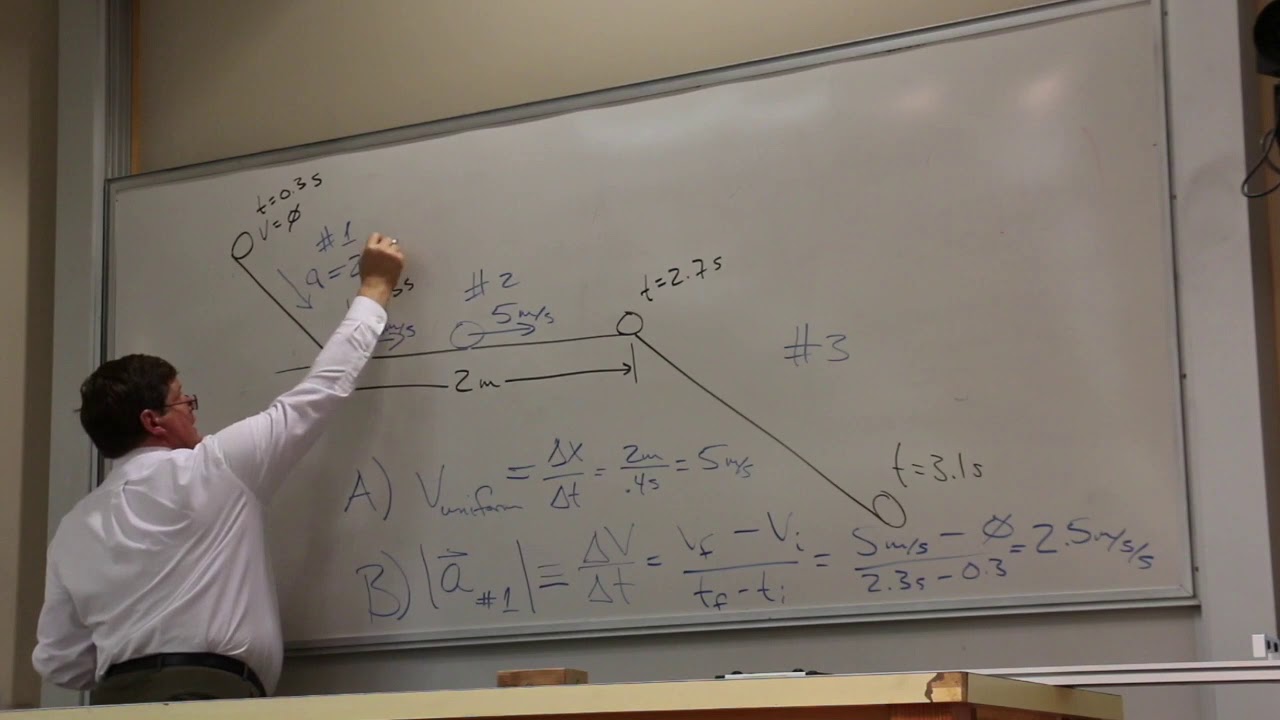 t=0.3s
v=∅
#1
a=2
#2
5m/s
m/s
t=2.7s
2m
#3
t=3.1s
A) Vuniform = ΔX/Δt = 2m/.4s = 5m/s
B) |a⃗#1| ≡ ΔV/Δt = (Vf - Vi)/(tf - ti) = (5m/s - ∅)/(2.3s - 0.3) = 2.5m/s/s